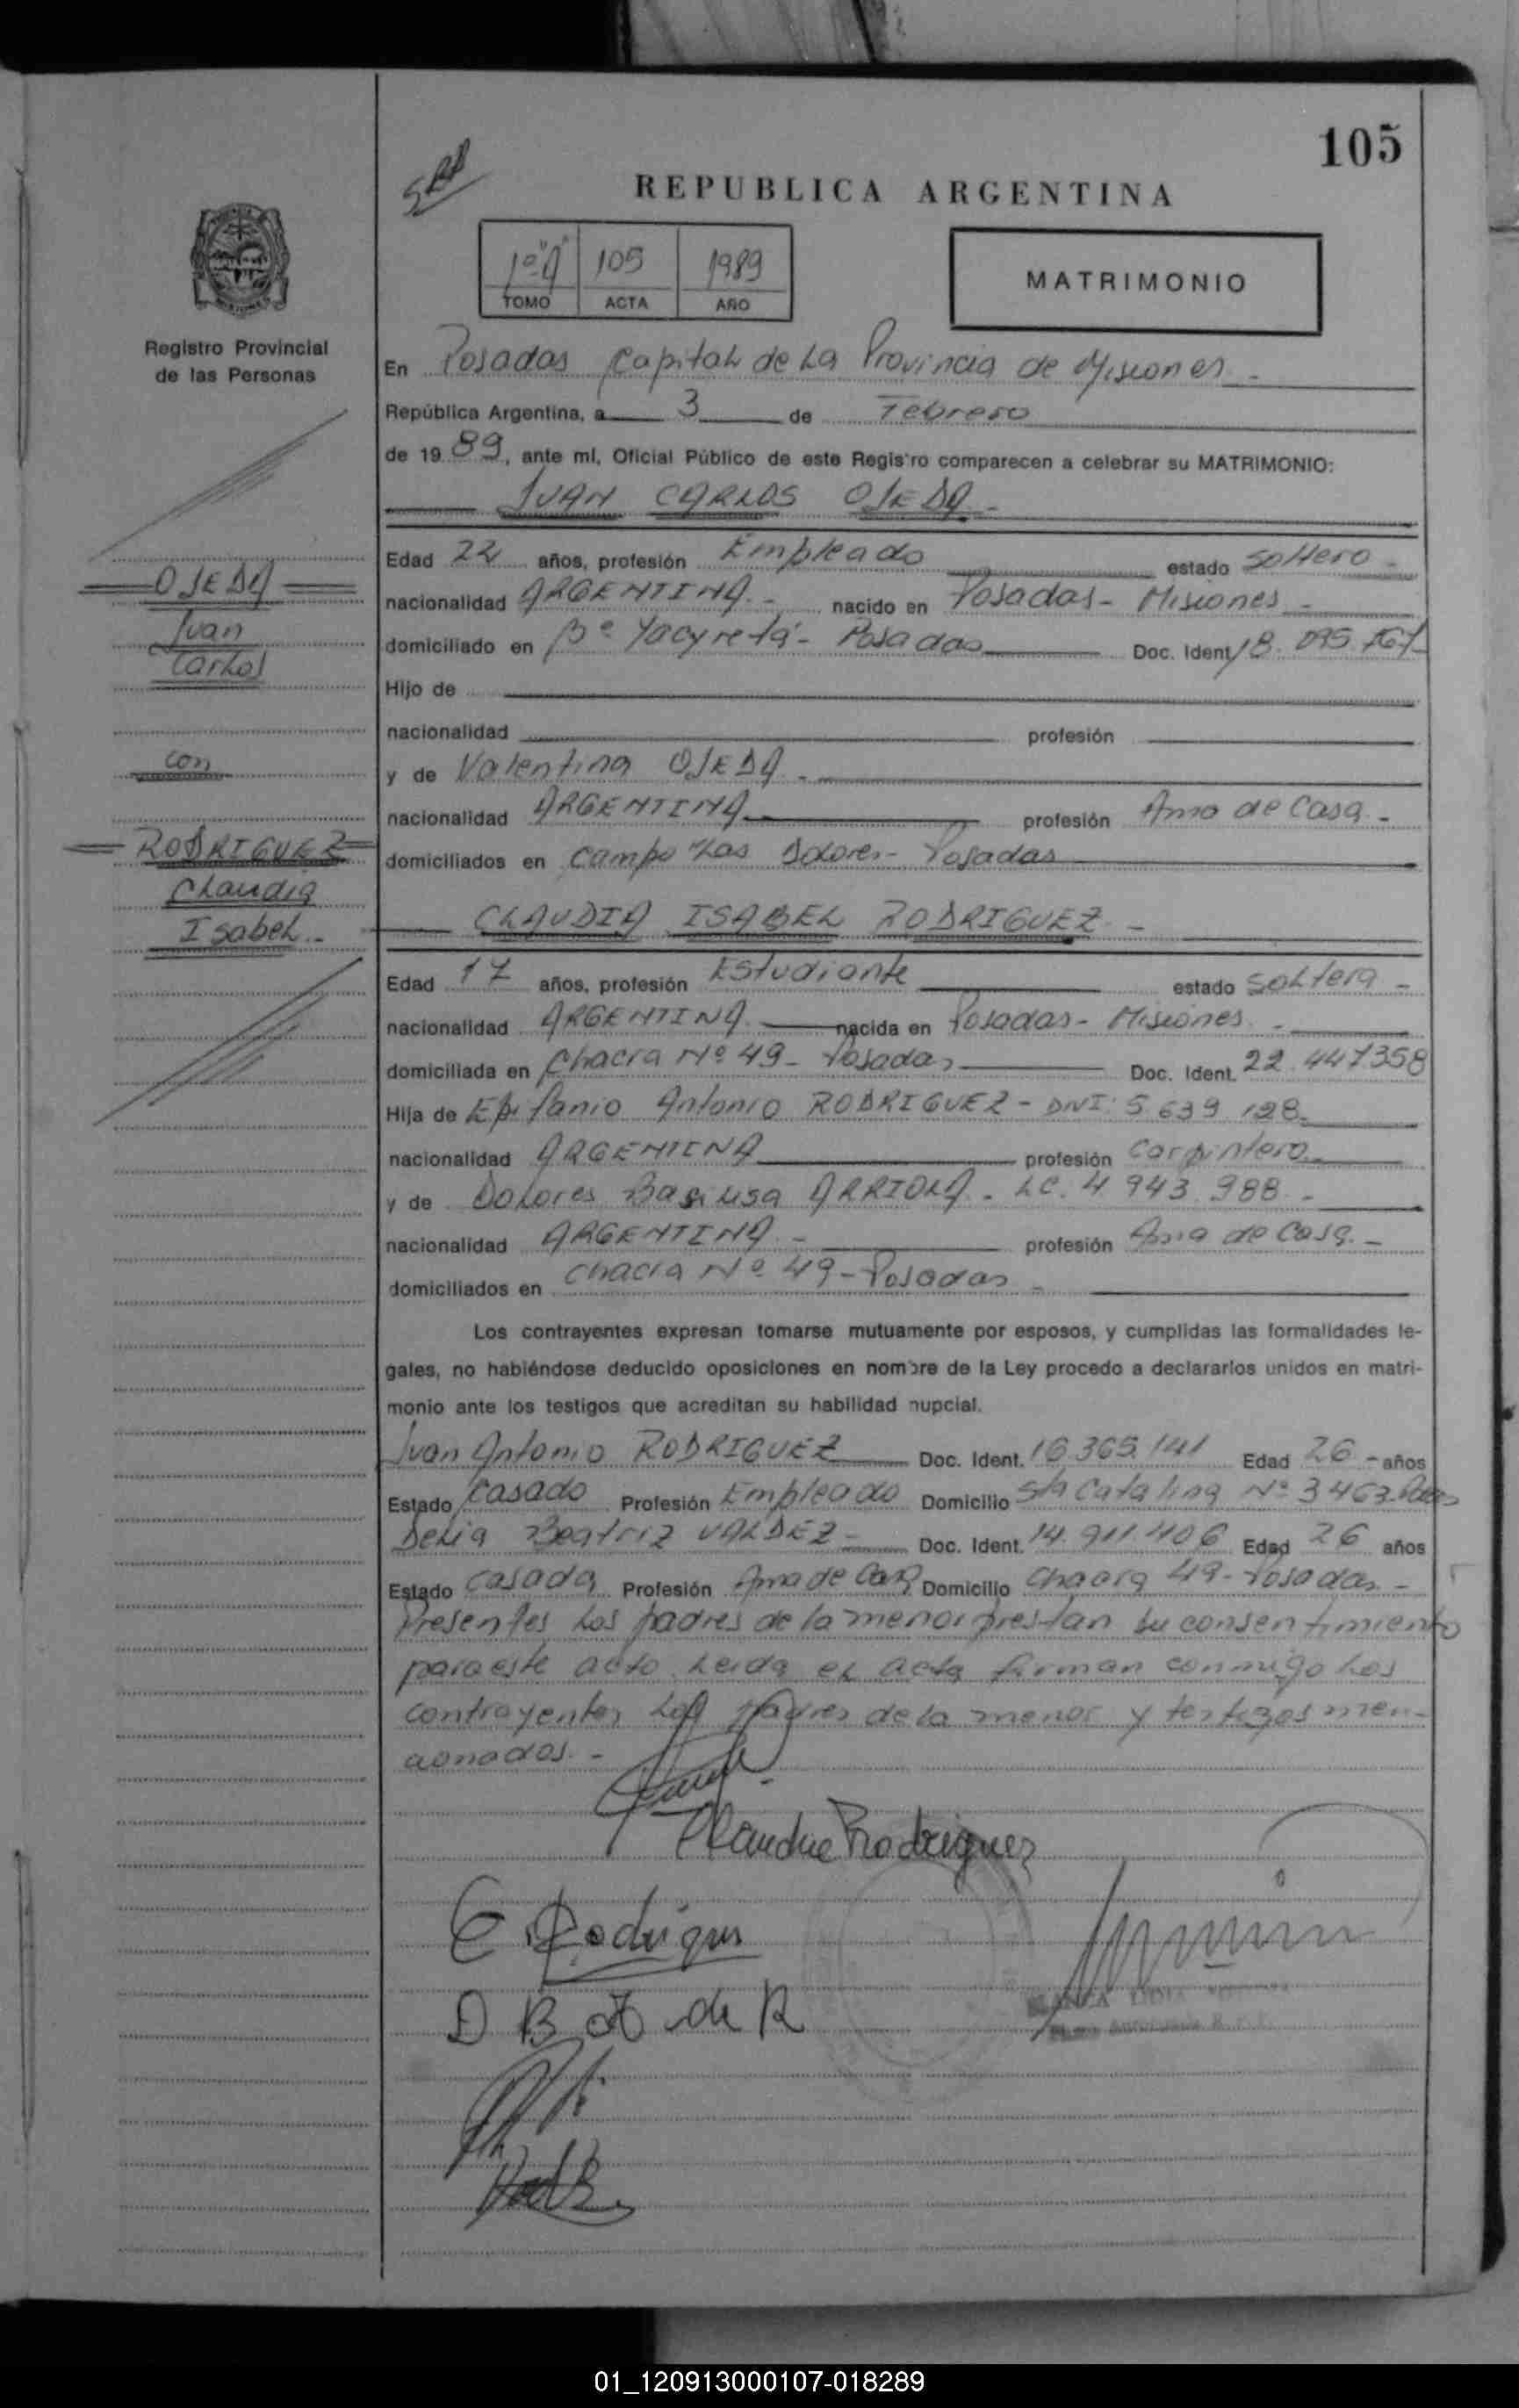 105
REPUBLICA ARGENTINA
1º "A" 105 1989
TOMO ACTA AÑO
MATRIMONIO
Registro Provincial
de las Personas
En Posadas Capital de La Provincia de Misiones -
República Argentina, a 3 de Febrero
de 19 89, ante mí, Oficial Público de este Registro comparecen a celebrar su MATRIMONIO:
JUAN CARLOS OJEDA -
Edad 22 años, profesión Empleado estado soltero -
nacionalidad ARGENTINA - nacido en Posadas - Misiones -
domiciliado en Bº Yacyretá - Posadas Doc. Ident. 18.095.
Hijo de
nacionalidad profesión
y de Valentina OJEDA -
nacionalidad ARGENTINA profesión Ama de Casa -
domiciliados en Campo Las Dolores - Posadas
CLAUDIA ISABEL RODRIGUEZ -
Edad 17 años, profesión Estudiante estado soltera -
nacionalidad ARGENTINA nacida en Posadas - Misiones -
domiciliada en Chacra Nº 49 - Posadas Doc. Ident. 22.447358
Hija de Epifanio Antonio RODRIGUEZ - DNI: 5.639.128
nacionalidad ARGENTINA profesión Carpintero
y de Dolores Basilisa ARRIOLA - LC. 4.943.988 -
nacionalidad ARGENTINA - profesión Ama de Casa -
domiciliados en Chacra Nº 49 - Posadas -
Los contrayentes expresan tomarse mutuamente por esposos, y cumplidas las formalidades le-
gales, no habiéndose deducido oposiciones en nombre de la Ley procedo a declararlos unidos en matri-
monio ante los testigos que acreditan su habilidad nupcial.
Juan Antonio RODRIGUEZ Doc. Ident. 16.365.141 Edad 26 - años
Estado Casado Profesión Empleado Domicilio Sta Catalina Nº 3463
Delia Beatriz VALDEZ - Doc. Ident. 14.911.406 Edad 26 años
Estado Casada Profesión Ama de Casa Domicilio Chacra 49 - Posadas -
Presentes Los padres de la menor prestan su consentimiento
para este acto. Leida el acta firman conmigo Los
contrayentes Los padres de la menor y testigos men-
cionados. -
Rodriguez
E. Rodrigues
D B de R
OJEDA
Juan
Carlos
con
RODRIGUEZ
Claudia
Isabel. -
01_120913000107-018289